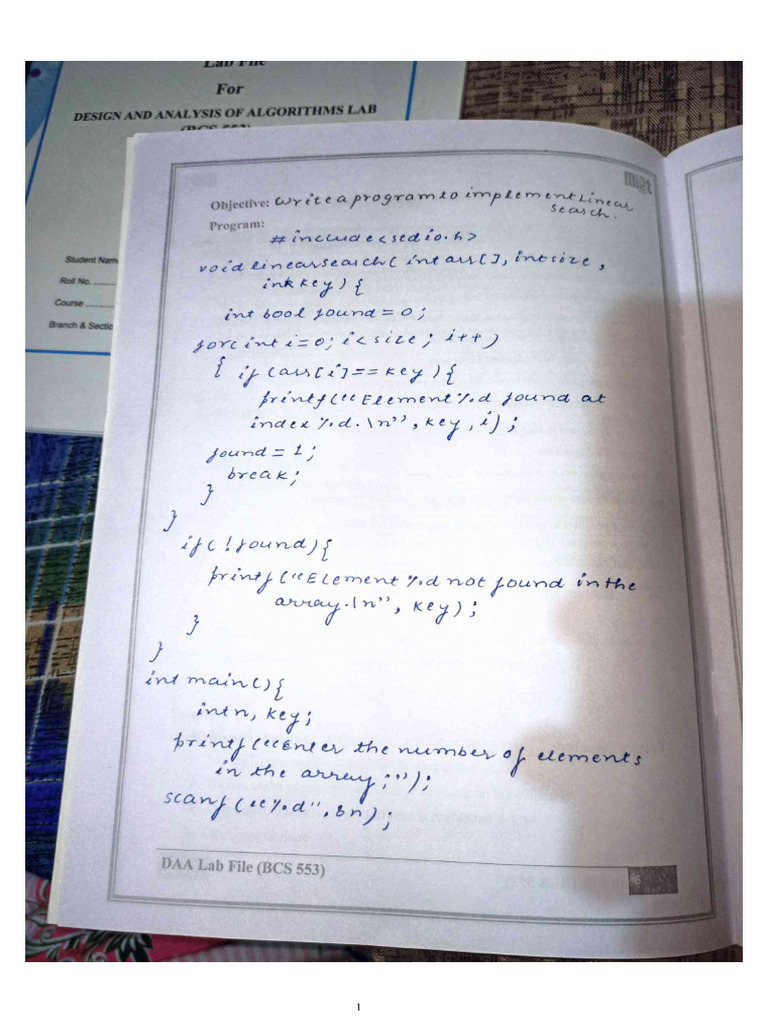 Lab File
For
DESIGN AND ANALYSIS OF ALGORITHMS LAB
(BCS 553)
Student Nam
Roll No.
Course
Branch & Sectio
Objective: Write a program to implement Linear
search.
Program:
#include<stdio.h>
void linearsearch( int arr[], int size,
int key) {
int bool found = 0;
for( int i=0; i< size; i++)
{ if (arr[i]== key ) {
printf(“Element %d found at
index %d.\n”, key, i);
found = 1;
break;
}
}
if( !found) {
printf (“Element %d not found in the
array.\n”, key);
}
}
int main() {
int n, key;
printf (“Enter the number of elements
in the array :”);
scanf (“%d”, &n);
DAA Lab File (BCS 553)
6
1